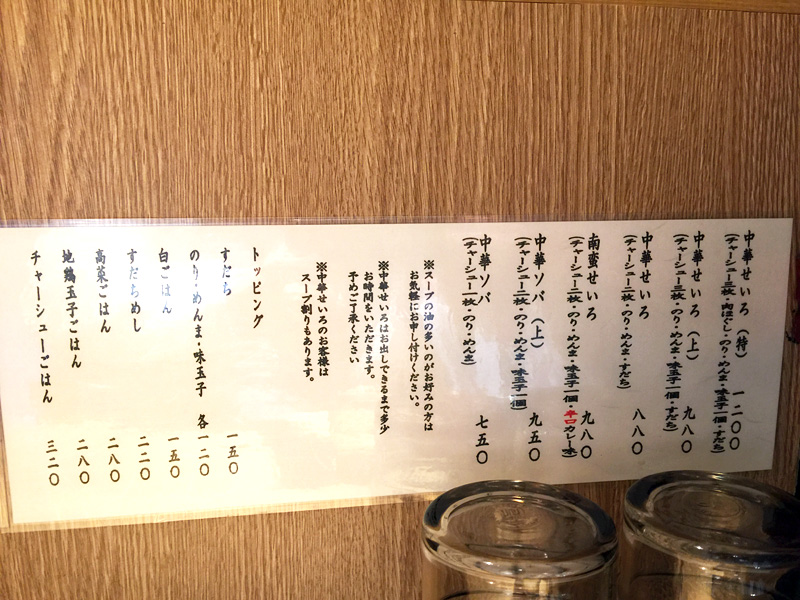 中華せいろ（特） 一二〇〇
（チャーシュー三枚・肉ほぐし・のり・めんま・味玉子一個・すだち）
中華せいろ（上） 九八〇
（チャーシュー二枚・のり・めんま・味玉子一個・すだち）
中華せいろ 八八〇
（チャーシュー一枚・のり・めんま・すだち）
南蛮せいろ 九八〇
（チャーシュー二枚・のり・めんま・味玉子一個・辛口カレー味）
中華ソバ（上） 九五〇
（チャーシュー二枚・のり・めんま・味玉子一個）
中華ソバ 七五〇
（チャーシュー一枚・のり・めんま）
※スープの油の多いのがお好みの方は
お気軽にお申し付けください。
※中華せいろはお出しできるまで多少
お時間をいただきます。
予めご了承ください
※中華せいろのお客様は
スープ割りもあります。
トッピング
すだち 一五〇
のり・めんま・味玉子 各一二〇
白ごはん 一五〇
すだちめし 二二〇
高菜ごはん 二八〇
地鶏玉子ごはん 二八〇
チャーシューごはん 三二〇